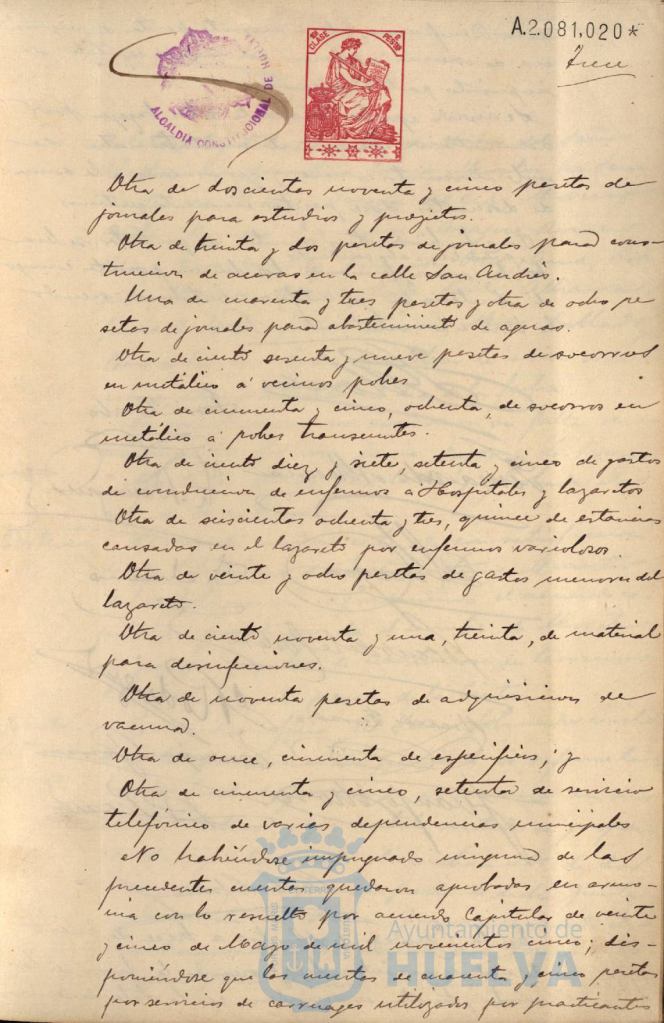 A.2.081.020*
Trece
CLASE
PESETAS
ALCALDIA CONSTITUCIONAL DE
Otra de doscientas noventa y cinco pesetas de
jornales para estudios y proyectos.
Otra de treinta y dos pesetas de jornales para cons-
truccion de aceras en la calle San Andrés.
Una de cuarenta y tres pesetas y otra de ocho pe
setas de jornales para abastecimiento de aguas.
Otra de ciento sesenta y nueve pesetas de socorros
en metálico á vecinos pobres
Otra de cincuenta y cinco, ochenta, de socorros en
metálico á pobres transeuntes.
Otra de ciento diez y siete, setenta y cinco de gastos
de conduccion de enfermos á Hospitales y lazaretos
Otra de seiscientas ochenta y tres, quince de estancias
causadas en el lazareto por enfermos variolosos.
Otra de veinte y ocho pesetas de gastos menores del
lazareto.
Otra de ciento noventa y una, treinta, de material
para desinfecciones.
Otra de noventa pesetas de adquisicion de
vacuna.
Otra de once, cincuenta de especificos; y
Otra de cincuenta y cinco, setenta de servicio
telefónico de varias dependencias municipales
No habiéndose impugnado ninguna de las
precedentes cuentas quedaron aprobadas en armo-
nia con lo resuelto por acuerdo Capitular de veinte
y cinco de Mayo de mil novecientos cinco; dis-
poniéndose que las cuentas de cuarenta y cinco pesetas
por servicios de carruages utilizados por practicantes
Ayuntamiento de
HUELVA